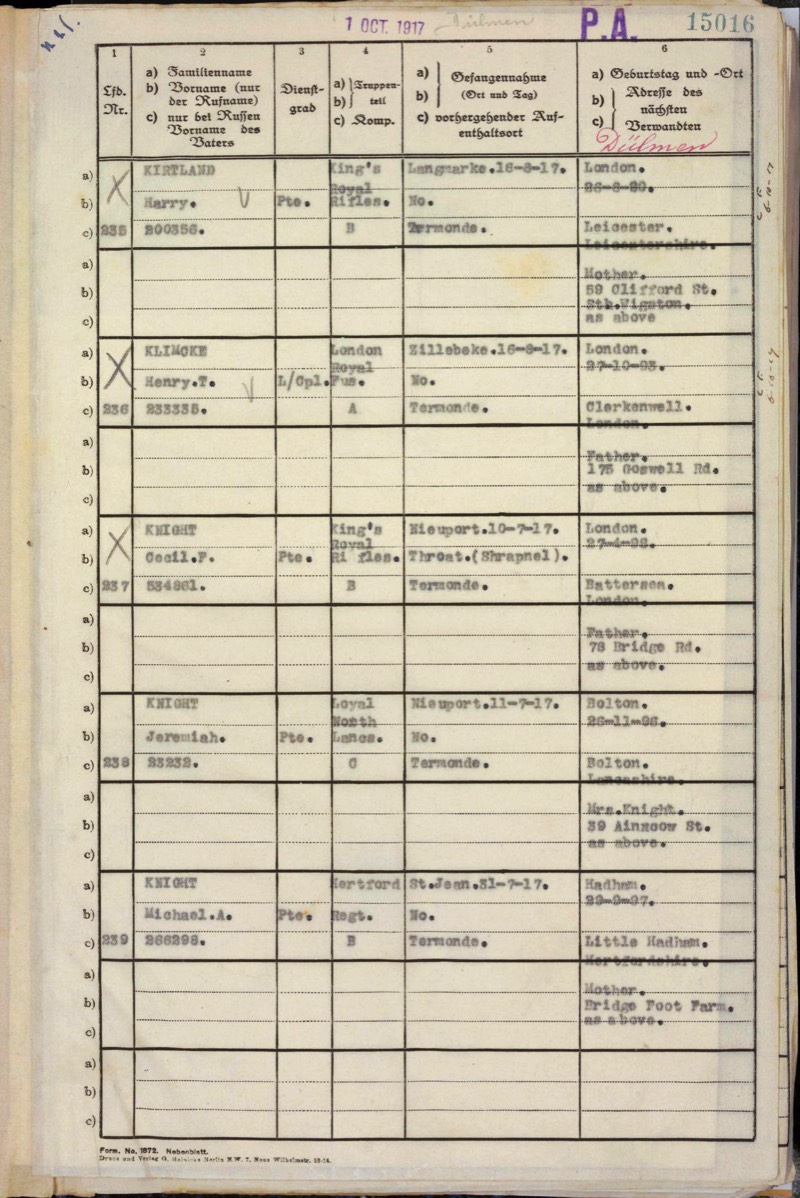 1 OCT. 1917 Dülmen P.A. 15016
1 2 3 4 5 6
Lfd. Nr.
a) Familienname
b) Vorname (nur der Rufname)
c) nur bei Russen Vorname des Vaters
Dienst-
grad
a) Truppen-
b) teil
c) Komp.
a) Gefangennahme
b) (Ort und Tag)
c) vorhergehender Auf-
enthaltsort
a) Geburtstag und -Ort
b) Adresse des
c) nächsten
Verwandten
Dülmen
a) KIRTLAND King's Langmarke.16-8-17. London.
Royal 26-8-20.
b) Harry. V Pte. Rifles. No.
c) 235 200356. B Termonde. Leicester.
Leicestershire.
a) Mother.
b) 59 Clifford St.
Sth.Wigston.
c) as above
a) KLIMCKE London Zillebeke.16-8-17. London.
Royal 27-10-93.
b) Henry.T. V L/Cpl. Fus. No.
c) 236 233335. A Termonde. Clerkenwell.
London.
a) Father.
b) 175 Goswell Rd.
c) as above.
a) KNIGHT King's Nieuport.10-7-17. London.
Royal 27-4-98.
b) Cecil.F. Pte. Ri fles. Throat.(Shrapnel).
c) 237 534861. B Termonde. Battersea.
London.
a) Father.
b) 78 Bridge Rd.
c) as above.
a) KNIGHT Loyal Nieuport.11-7-17. Bolton.
North 26-11-96.
b) Jeremiah. Pte. Lancs. No.
c) 238 23232. C Termonde. Bolton.
Lancashire.
a) Mrs.Knight.
b) 39 Ainscow St.
c) as above.
a) KNIGHT Hertford St.Jean.31-7-17. Hadham.
29-9-97.
b) Michael.A. Pte. Regt. No.
c) 239 266298. B Termonde. Little Hadham.
Hertfordshire.
a) Mother.
b) Bridge Foot Farm.
c) as above.
a)
b)
c)
Form. No. 1872. Nebenblatt.
Druck und Verlag G. Berlin N.W. 7, Neue Wilhelmstr.